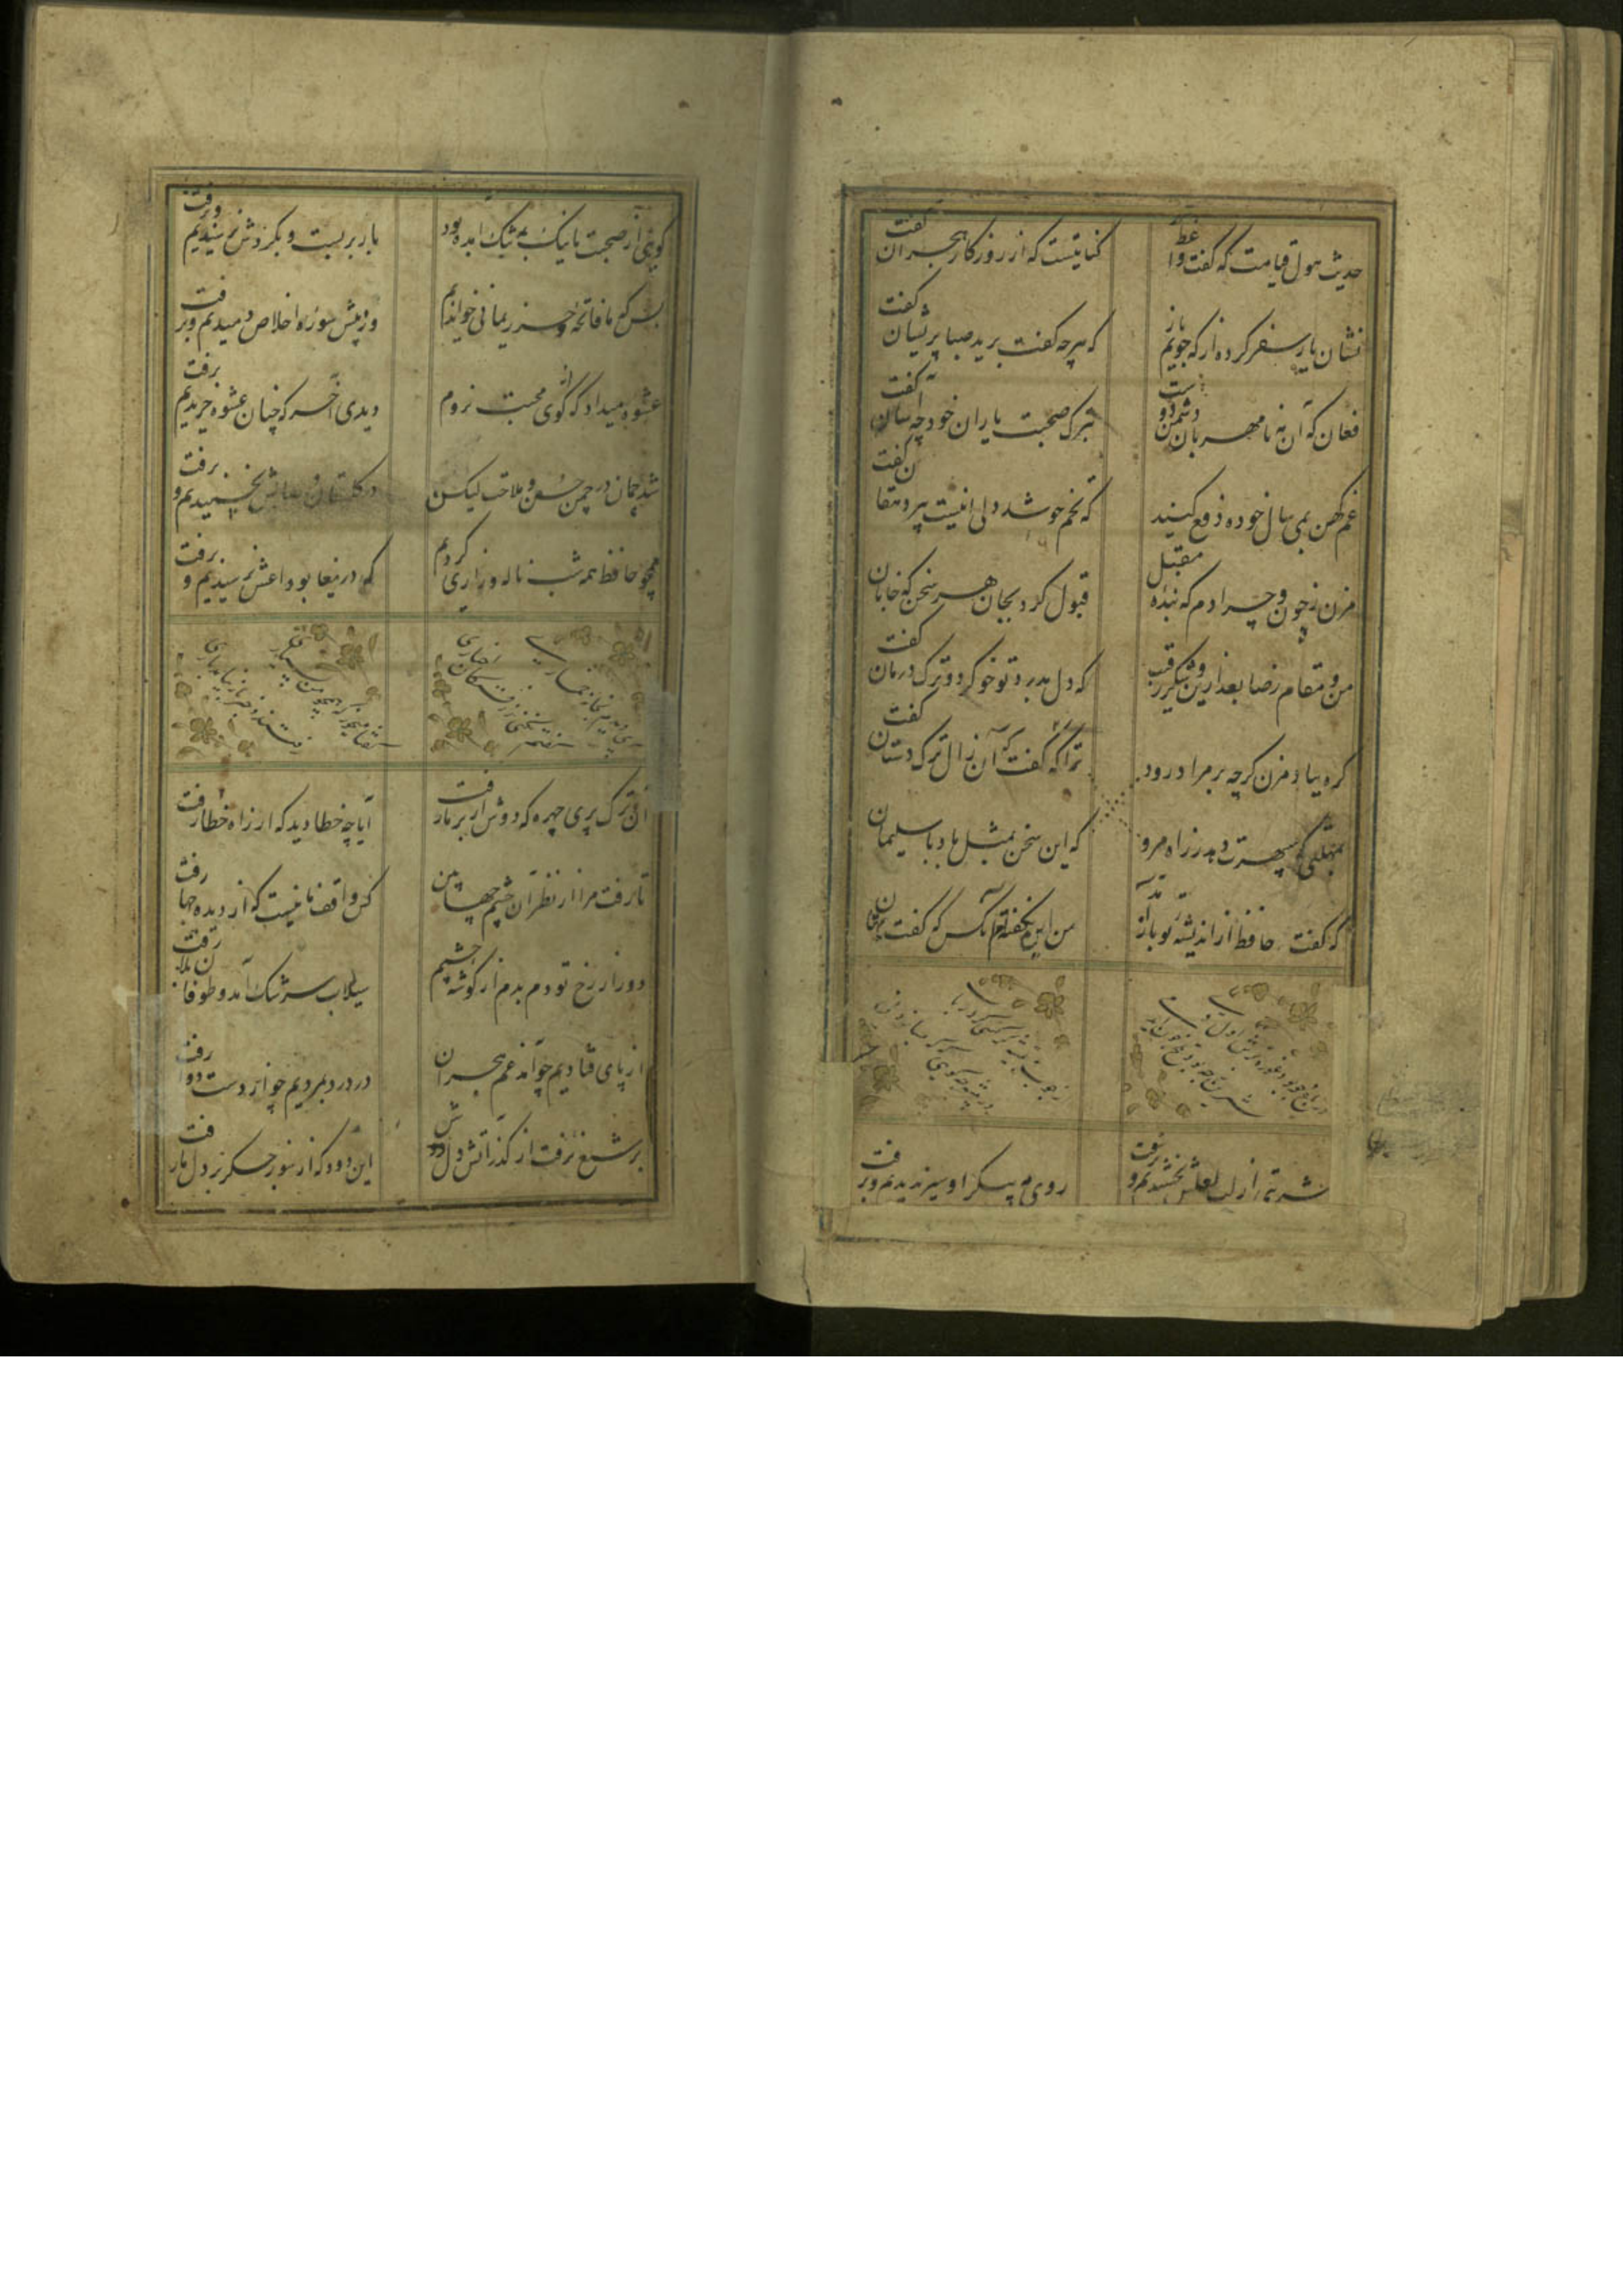 حدیث هول قیامت که گفت واعظ
کنایتیست که از روزگار هجران گفت
نشان یار سفر کرده از که جویم باز
که هرچه گفت برید صبا پریشان گفت
فغان که آن مه نامهربان دشمن دوست
بترک صحبت یاران خود چه آسان گفت
غم کهن بمی سال خورده دفع کنید
که تخم خوشدلی اینست پیر دهقان گفت
مزن ز چون و چرا دم که بنده مقبل
قبول کرد بجان هر سخن که جانان گفت
من و مقام رضا بعد ازین و شکر رقیب
که دل بدرد تو خو کرد و ترک درمان گفت
گره بباد مزن گرچه بر مراد رود
ترا که گفت که آن زال ترک دستان گفت
بمهلتی که سپهرت دهد ز راه مرو
که این سخن بمثل باد با سلیمان گفت
که گفت حافظ از اندیشه تو باز آمد
من این نگفته‌ام آنکس که گفت بهتان گفت
شربتی از لب لعلش نچشیدیم و برفت
روی مه پیکر او سیر ندیدیم و برفت
گویی از صحبت ما نیک به تنگ آمده بود
بار بربست و بگردش نرسیدیم و برفت
بس که ما فاتحه و حرز یمانی خواندیم
وز پیش سوره اخلاص دمیدیم و برفت
عشوه میداد که از کوی محبت نروم
دیدی آخر که چنان عشوه خریدیم برفت
شد چمان در چمن حسن و ملاحت لیکن
در گلستان وصالش نچمیدیم و برفت
همچو حافظ همه شب ناله و زاری کردیم
که دریغا بوداعش نرسیدیم و برفت
آن ترک پری چهره که دوش از بر ما رفت
آیا چه خطا دید که از راه خطا رفت
تا رفت مرا از نظر آن چشم جهان بین
کس واقف ما نیست که از دیده چها رفت
دور از رخ تو دم بدم از گوشه چشم
سیلاب سرشک آمد و طوفان بلا رفت
از پای فتادیم چو آمد غم هجران
در درد بمردیم چو از دست دوا رفت
بر شمع نرفت از گذر آتش دل دوش
این دود که از سوز جگر بر دل ما رفت